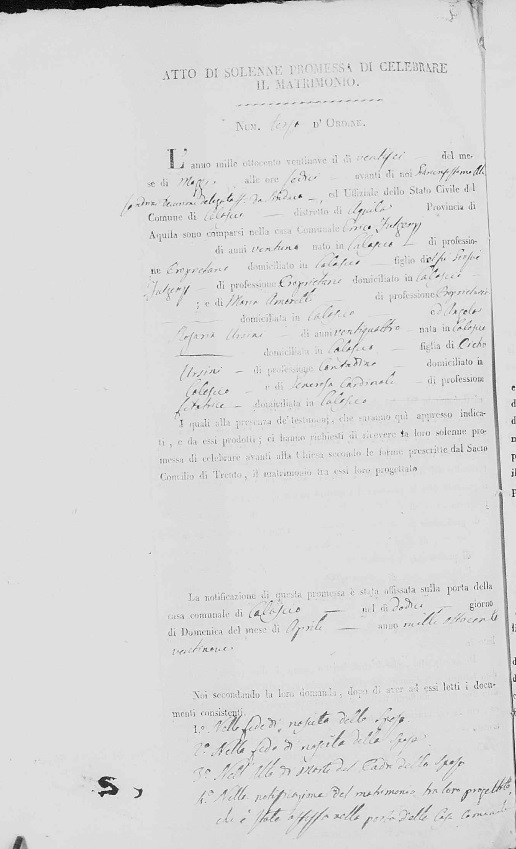 ATTO DI SOLENNE PROMESSA DI CELEBRARE
IL MATRIMONIO.
NUM. terzo D'ORDINE.
L'anno mille ottocento ventinove il dì ventisei del me-
se di Maggio alle ore sedici avanti di noi
ed Uffiziale dello Stato Civile del
Comune di Calascio distretto di Aquila Provincia di
Aquila sono comparsi nella casa Comunale
di anni ventuno nato in Calascio di professio-
ne Proprietario domiciliato in Calascio figlio del
di professione Proprietario domiciliato in Calascio
; e di Maria di professione Proprietaria
domiciliata in Calascio ed Angela
Rosaria Ursini di anni ventiquattro nata in Calascio
domiciliata in Calascio figlia di Cicho
Ursini di professione Contadino domiciliato in
Calascio e di Generosa Cardinale di professione
Filatrice domiciliata in Calascio
I quali alla presenza de' testimonj, che saranno quì appresso indica-
ti, e da essi prodotti; ci hanno richiesti di ricevere la loro solenne pro-
messa di celebrare avanti alla Chiesa secondo le forme prescritte dal Sacro
Concilio di Trento, il matrimonio tra essi loro progettato
La notificazione di questa promessa è stata affissata sulla porta della
casa comunale di Calascio nel dì dodici giorno
di Domenica del mese di Aprile anno mille ottocento
ventinove.
Noi secondando la loro domanda, dopo di aver ad essi letti i docu-
menti consistenti.
1.° Nella fede di nascita dello Sposo
2.° Nella fede di nascita della Sposa
3.° Nell'Atto di Morte del Padre dello Sposo
4.° Nella notificazione del matrimonio tra loro progettato,
che è stata affissa nella porta della Casa Comunale